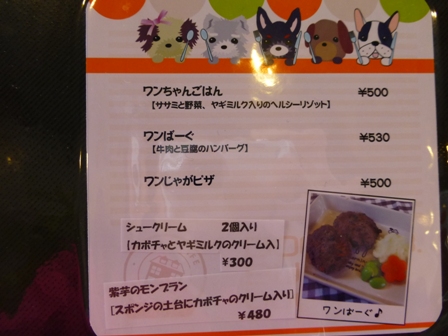 ワンちゃんごはん ¥500
【ササミと野菜、ヤギミルク入りのヘルシーリゾット】
ワンばーぐ ¥530
【牛肉と豆腐のハンバーグ】
ワンじゃがピザ ¥500
シュークリーム 2個入り
【カボチャとヤギミルクのクリーム入】
¥300
紫芋のモンブラン
[スポンジの土台にカボチャのクリーム入り]
¥480
ワンばーぐ♪